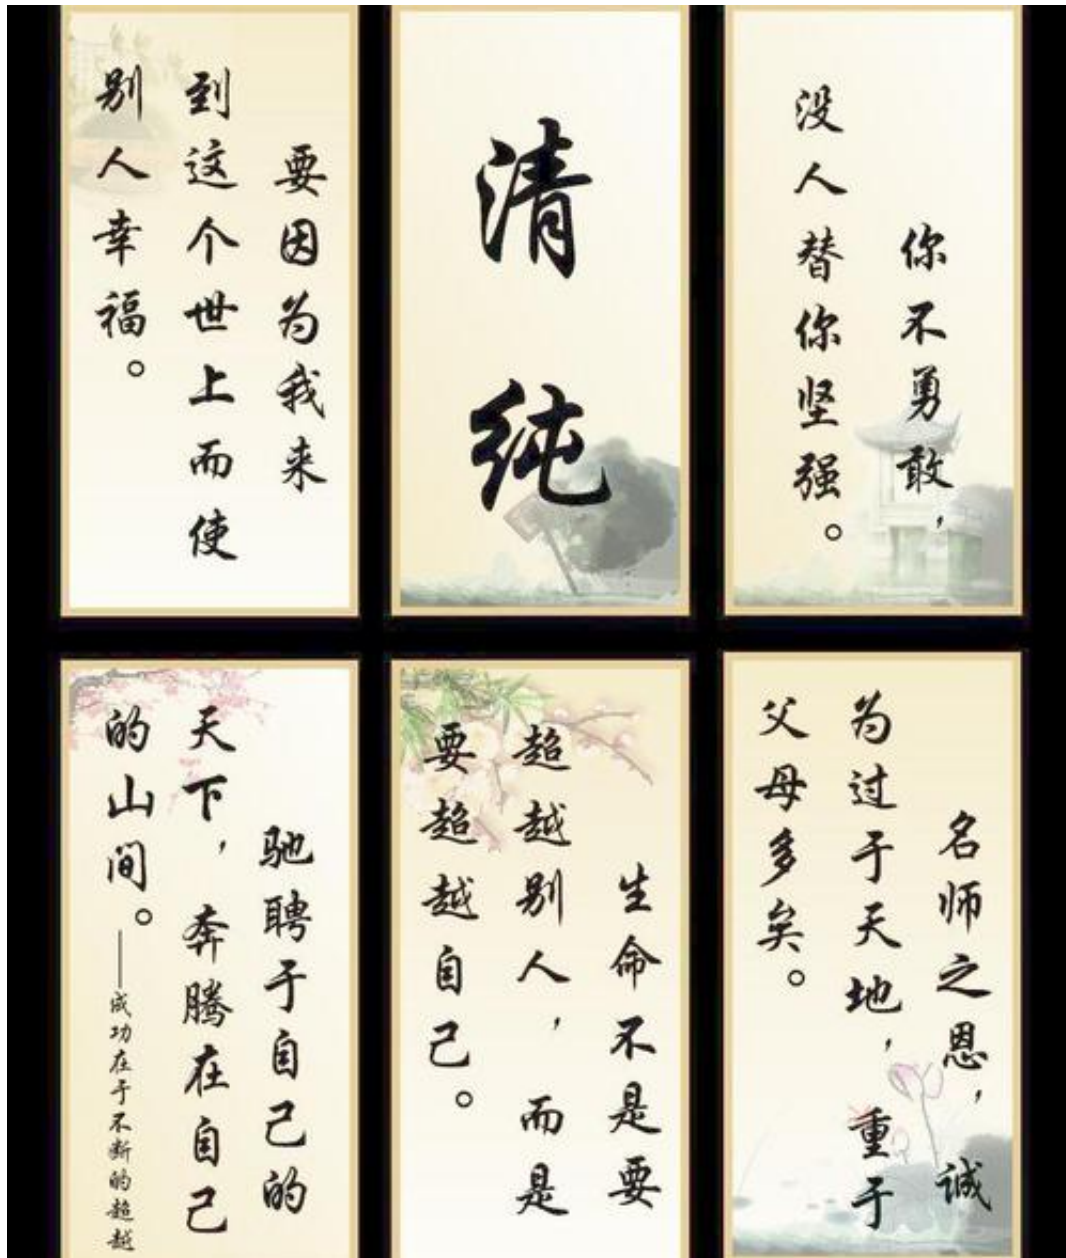 要因为我来
到这个世上而使
别人幸福。
清纯
你不勇敢，
没人替你坚强。
驰聘于自己的
天下，奔腾在自己
的山间。——成功在于不断的超越
生命不是要
超越别人，而是
要超越自己。
名师之恩，诚
为过于天地，重于
父母多矣。